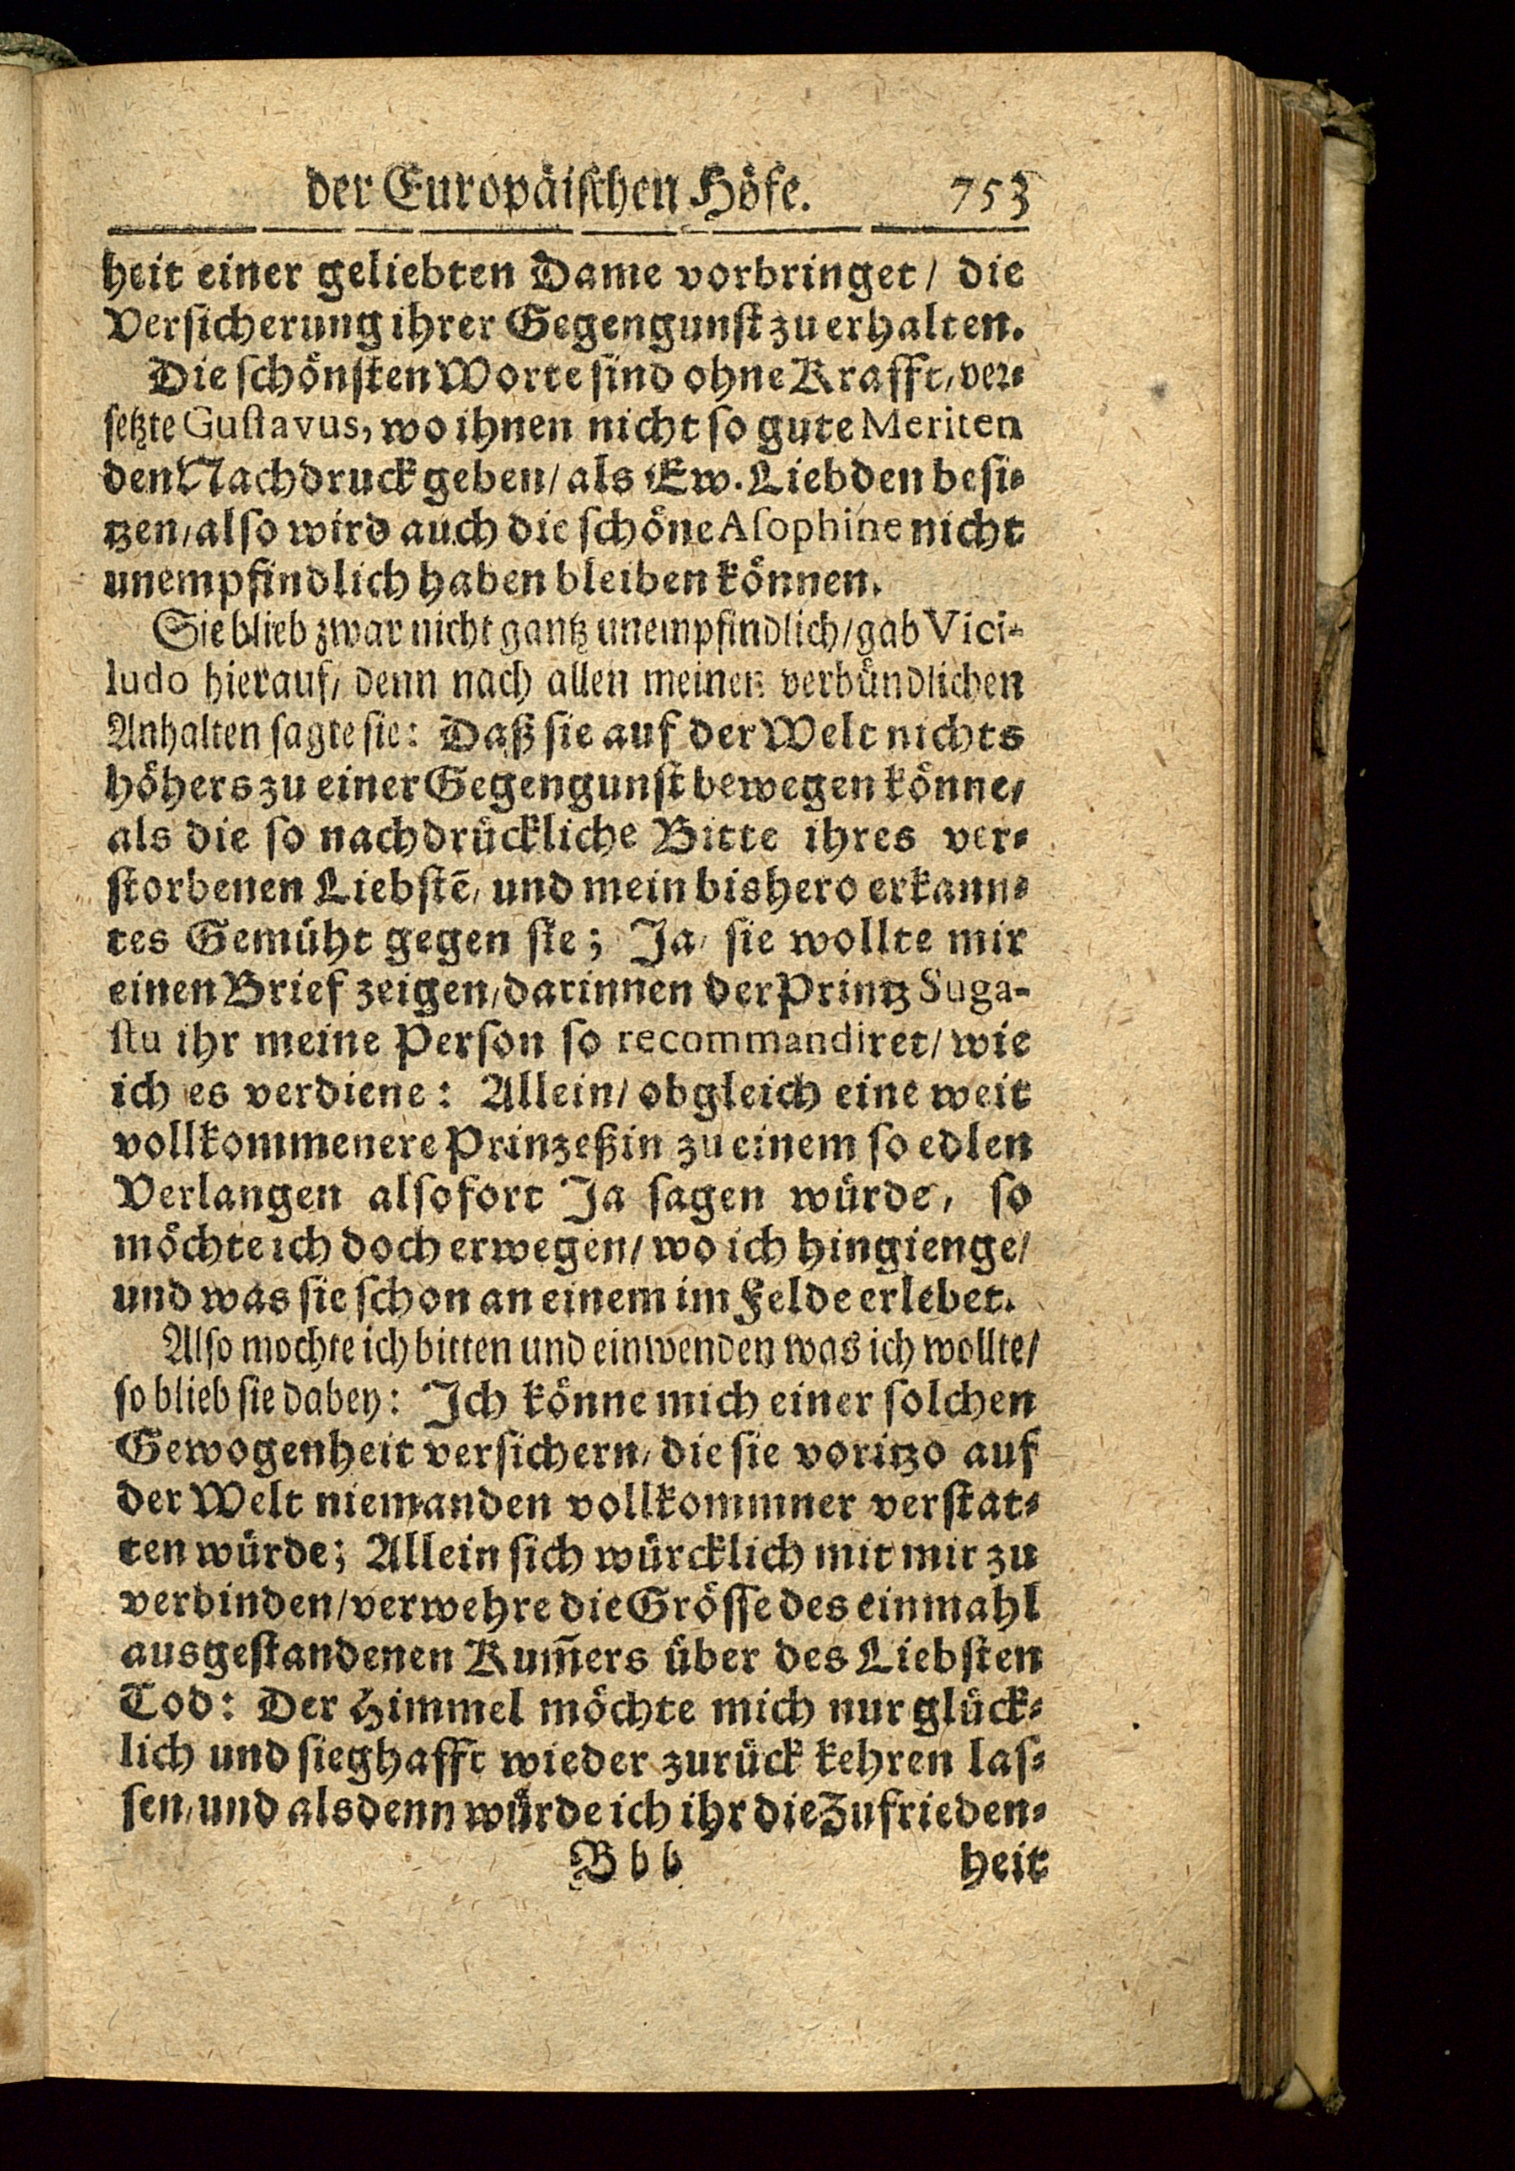 der Europäiſchen Höfe. 753
heit einer geliebten Dame vorbringet / die
Verſicherung ihrer Gegengunſt zu erhalten.
Die ſchönſten Worte ſind ohne Krafft / ver⸗
ſetzte Guſtavus, wo ihnen nicht ſo gute Meriten
den Nachdruck geben / als Ew. Liebden beſi⸗
tzen / alſo wird auch die ſchöne Aſophine nicht
unempfindlich haben bleiben können.
Sie blieb zwar nicht gantz unempfindlich / gab Vici-
ludo hierauf / denn nach allen meinen verbündlichen
Anhalten ſagte ſie: Daß ſie auf der Welt nichts
höhers zu einer Gegengunſt bewegen könne /
als die ſo nachdrückliche Bitte ihres ver⸗
ſtorbenen Liebſtē / und mein bishero erkann⸗
tes Gemüht gegen ſie; Ja / ſie wollte mir
einen Brief zeigen / darinnen der Printz Suga-
ſtu ihr meine Perſon ſo recommandiret / wie
ich es verdiene: Allein / obgleich eine weit
vollkommenere Prinzeßin zu einem ſo edlen
Verlangen alſofort Ja ſagen würde / ſo
möchte ich doch erwegen / wo ich hingienge /
und was ſie ſchon an einem im Felde erlebet.
Alſo mochte ich bitten und einwenden was ich wollte /
ſo blieb ſie dabey: Ich könne mich einer ſolchen
Gewogenheit verſichern / die ſie voritzo auf
der Welt niemanden vollkommner verſtat⸗
ten würde; Allein ſich würcklich mit mir zu
verbinden / verwehre die Gröſſe des einmahl
ausgeſtandenen Kum̄ers über des Liebſten
Tod: Der Himmel möchte mich nur glück⸗
lich und ſieghafft wieder zurück kehren laſ⸗
ſen / und alsdenn würde ich ihr die Zufrieden⸗
B b b heit